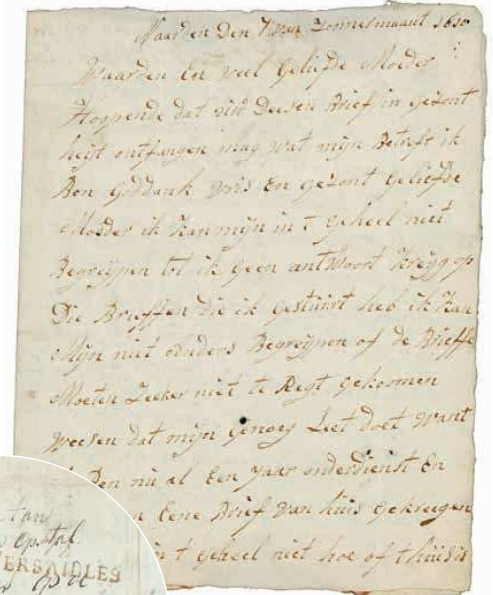 Naarden Den van Zommermaant
Waarden En veel Geliefde Moeder
Hoopende dat uw Deesen Brief in gezont
heijt ontfangen mag wat mijn Betreft ik
Ben Goddank vris en gezont Geliefde
Moeder ik Kan mijn in t geheel niet
Begreijpen tot ik geen antwoort Kreijg op
Die Brieffen die ik gestuirt heb ik Kan
Mijn niet onders Begreijpen of de Brieffe
Moeten Zeeker niet te Regt gekoomen
weesen dat mijn genoeg Leet doet want
Ben nu al Een jaar onderdienst En
Eene Brief van huis gekreegen
in t geheel niet hoe of t huis is
VERSAILLES